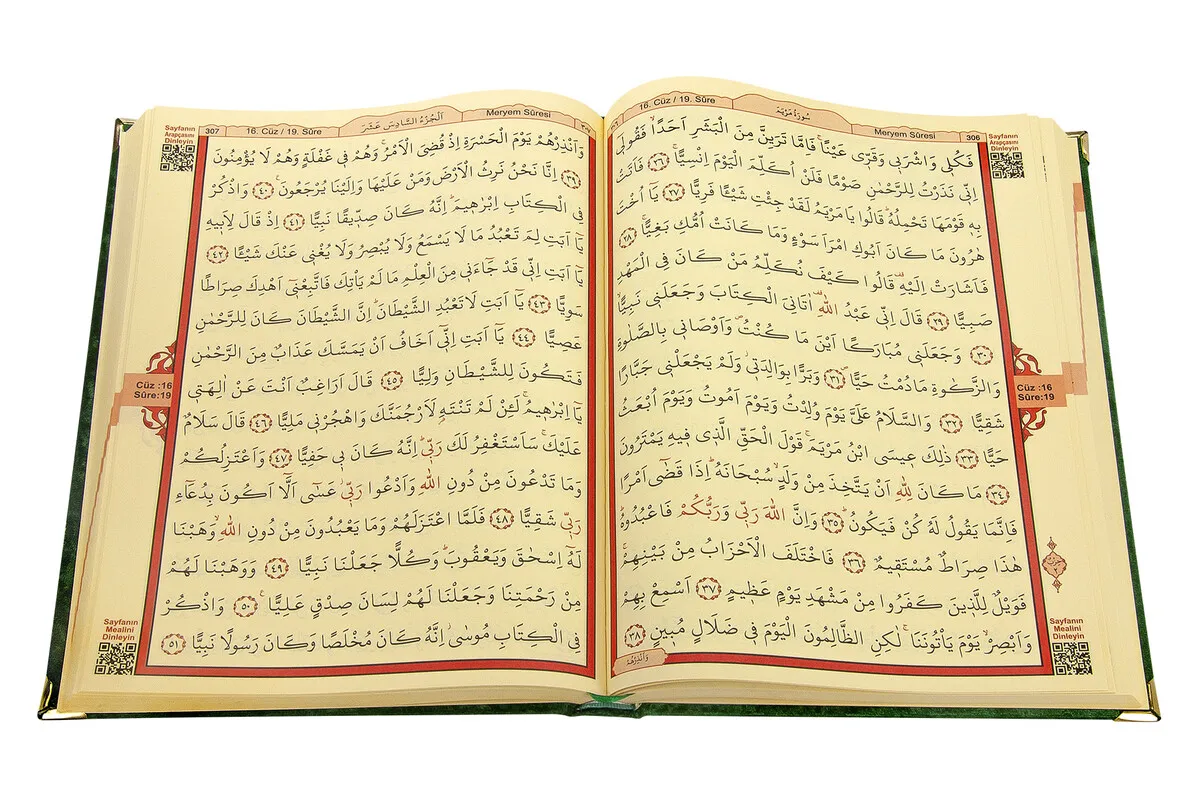 16. Cüz / 19. Sûre
سُورَةُ مَرْيَمَ
Meryem Sûresi
306
Sayfanın
Arapçasını
Dinleyin
فَكُلِى وَاشْرَبِى وَقَرِّى عَيْنًاۚ فَاِمَّا تَرَيِنَّ مِنَ الْبَشَرِ اَحَدًاۙ فَقُولِٓى
اِنِّى نَذَرْتُ لِلرَّحْمٰنِ صَوْمًا فَلَنْ اُكَلِّمَ الْيَوْمَ اِنْسِيًّاۚ ﴿٢٦﴾ فَاَتَتْ
بِهٖ قَوْمَهَا تَحْمِلُهُۜ قَالُوا يَا مَرْيَمُ لَقَدْ جِئْتِ شَيْـًٔا فَرِيًّا ﴿٢٧﴾ يَٓا اُخْتَ
هٰرُونَ مَا كَانَ اَبُوكِ امْرَاَ سَوْءٍ وَمَا كَانَتْ اُمُّكِ بَغِيًّاۚ ﴿٢٨﴾
فَاَشَارَتْ اِلَيْهِۜ قَالُوا كَيْفَ نُكَلِّمُ مَنْ كَانَ فِى الْمَهْدِ
صَبِيًّا ﴿٢٩﴾ قَالَ اِنِّى عَبْدُ اللّٰهِۜ اٰتَانِىَ الْكِتَابَ وَجَعَلَنِى نَبِيًّاۙ
﴿٣٠﴾ وَجَعَلَنِى مُبَارَكًا اَيْنَ مَا كُنْتُۖ وَاَوْصَانِى بِالصَّلٰوةِ
وَالزَّكٰوةِ مَا دُمْتُ حَيًّاۖ ﴿٣١﴾ وَبَرًّا بِوَالِدَتِىۘ وَلَمْ يَجْعَلْنِى جَبَّارًا
شَقِيًّا ﴿٣٢﴾ وَالسَّلَامُ عَلَىَّ يَوْمَ وُلِدْتُ وَيَوْمَ اَمُوتُ وَيَوْمَ اُبْعَثُ
حَيًّا ﴿٣٣﴾ ذٰلِكَ عِيسَى ابْنُ مَرْيَمَۚ قَوْلَ الْحَقِّ الَّذِى فِيهِ يَمْتَرُونَ
﴿٣٤﴾ مَا كَانَ لِلّٰهِ اَنْ يَتَّخِذَ مِنْ وَلَدٍۙ سُبْحَانَهُۜ اِذَا قَضٰٓى اَمْرًا
فَاِنَّمَا يَقُولُ لَهُ كُنْ فَيَكُونُۜ ﴿٣٥﴾ وَاِنَّ اللّٰهَ رَبِّى وَرَبُّكُمْ فَاعْبُدُوهُۜ
هٰذَا صِرَاطٌ مُسْتَقِيمٌ ﴿٣٦﴾ فَاخْتَلَفَ الْاَحْزَابُ مِنْ بَيْنِهِمْۚ
فَوَيْلٌ لِلَّذِينَ كَفَرُوا مِنْ مَشْهَدِ يَوْمٍ عَظِيمٍ ﴿٣٧﴾ اَسْمِعْ بِهِمْ
وَاَبْصِرْۙ يَوْمَ يَأْتُونَنَا لٰكِنِ الظَّالِمُونَ الْيَوْمَ فِى ضَلَالٍ مُبِينٍ ﴿٣٨﴾
وَاَنْذِرْهُمْ
Cüz :16
Sûre:19
Sayfanın
Mealini
Dinleyin
307
16. Cüz / 19. Sûre
اَلْجُزْءُ السَّادِسَ عَشَرَ
Meryem Sûresi
Sayfanın
Arapçasını
Dinleyin
وَاَنْذِرْهُمْ يَوْمَ الْحَسْرَةِ اِذْ قُضِىَ الْاَمْرُۢ وَهُمْ فِى غَفْلَةٍ وَهُمْ لَا يُؤْمِنُونَ
﴿٣٩﴾ اِنَّا نَحْنُ نَرِثُ الْاَرْضَ وَمَنْ عَلَيْهَا وَاِلَيْنَا يُرْجَعُونَ۟ ﴿٤٠﴾ وَاذْكُرْ
فِى الْكِتَابِ اِبْرٰهِيمَۜ اِنَّهُ كَانَ صِدِّيقًا نَبِيًّا ﴿٤١﴾ اِذْ قَالَ لِاَبِيهِ
يَٓا اَبَتِ لِمَ تَعْبُدُ مَا لَا يَسْمَعُ وَلَا يُبْصِرُ وَلَا يُغْنِى عَنْكَ شَيْـًٔا ﴿٤٢﴾
يَٓا اَبَتِ اِنِّى قَدْ جَٓاءَنِى مِنَ الْعِلْمِ مَا لَمْ يَأْتِكَ فَاتَّبِعْنِٓى اَهْدِكَ صِرَاطًا
سَوِيًّا ﴿٤٣﴾ يَٓا اَبَتِ لَا تَعْبُدِ الشَّيْطَانَۜ اِنَّ الشَّيْطَانَ كَانَ لِلرَّحْمٰنِ
عَصِيًّا ﴿٤٤﴾ يَٓا اَبَتِ اِنِّٓى اَخَافُ اَنْ يَمَسَّكَ عَذَابٌ مِنَ الرَّحْمٰنِ
فَتَكُونَ لِلشَّيْطَانِ وَلِيًّا ﴿٤٥﴾ قَالَ اَرَاغِبٌ اَنْتَ عَنْ اٰلِهَتِى
يَٓا اِبْرٰهِيمُۚ لَئِنْ لَمْ تَنْتَهِ لَاَرْجُمَنَّكَ وَاهْجُرْنِى مَلِيًّا ﴿٤٦﴾ قَالَ سَلَامٌ
عَلَيْكَۚ سَاَسْتَغْفِرُ لَكَ رَبِّىۜ اِنَّهُ كَانَ بِى حَفِيًّا ﴿٤٧﴾ وَاَعْتَزِلُكُمْ
وَمَا تَدْعُونَ مِنْ دُونِ اللّٰهِ وَاَدْعُوا رَبِّىۘ عَسٰٓى اَلَّٓا اَكُونَ بِدُعَٓاءِ
رَبِّى شَقِيًّا ﴿٤٨﴾ فَلَمَّا اعْتَزَلَهُمْ وَمَا يَعْبُدُونَ مِنْ دُونِ اللّٰهِۙ وَهَبْنَا
لَهُٓ اِسْحٰقَ وَيَعْقُوبَۜ وَكُلًّا جَعَلْنَا نَبِيًّا ﴿٤٩﴾ وَوَهَبْنَا لَهُمْ
مِنْ رَحْمَتِنَا وَجَعَلْنَا لَهُمْ لِسَانَ صِدْقٍ عَلِيًّا۟ ﴿٥٠﴾ وَاذْكُرْ
فِى الْكِتَابِ مُوسٰىۘ اِنَّهُ كَانَ مُخْلَصًا وَكَانَ رَسُولًا نَبِيًّا ﴿٥١﴾
Cüz :16
Sûre:19
Sayfanın
Mealini
Dinleyin